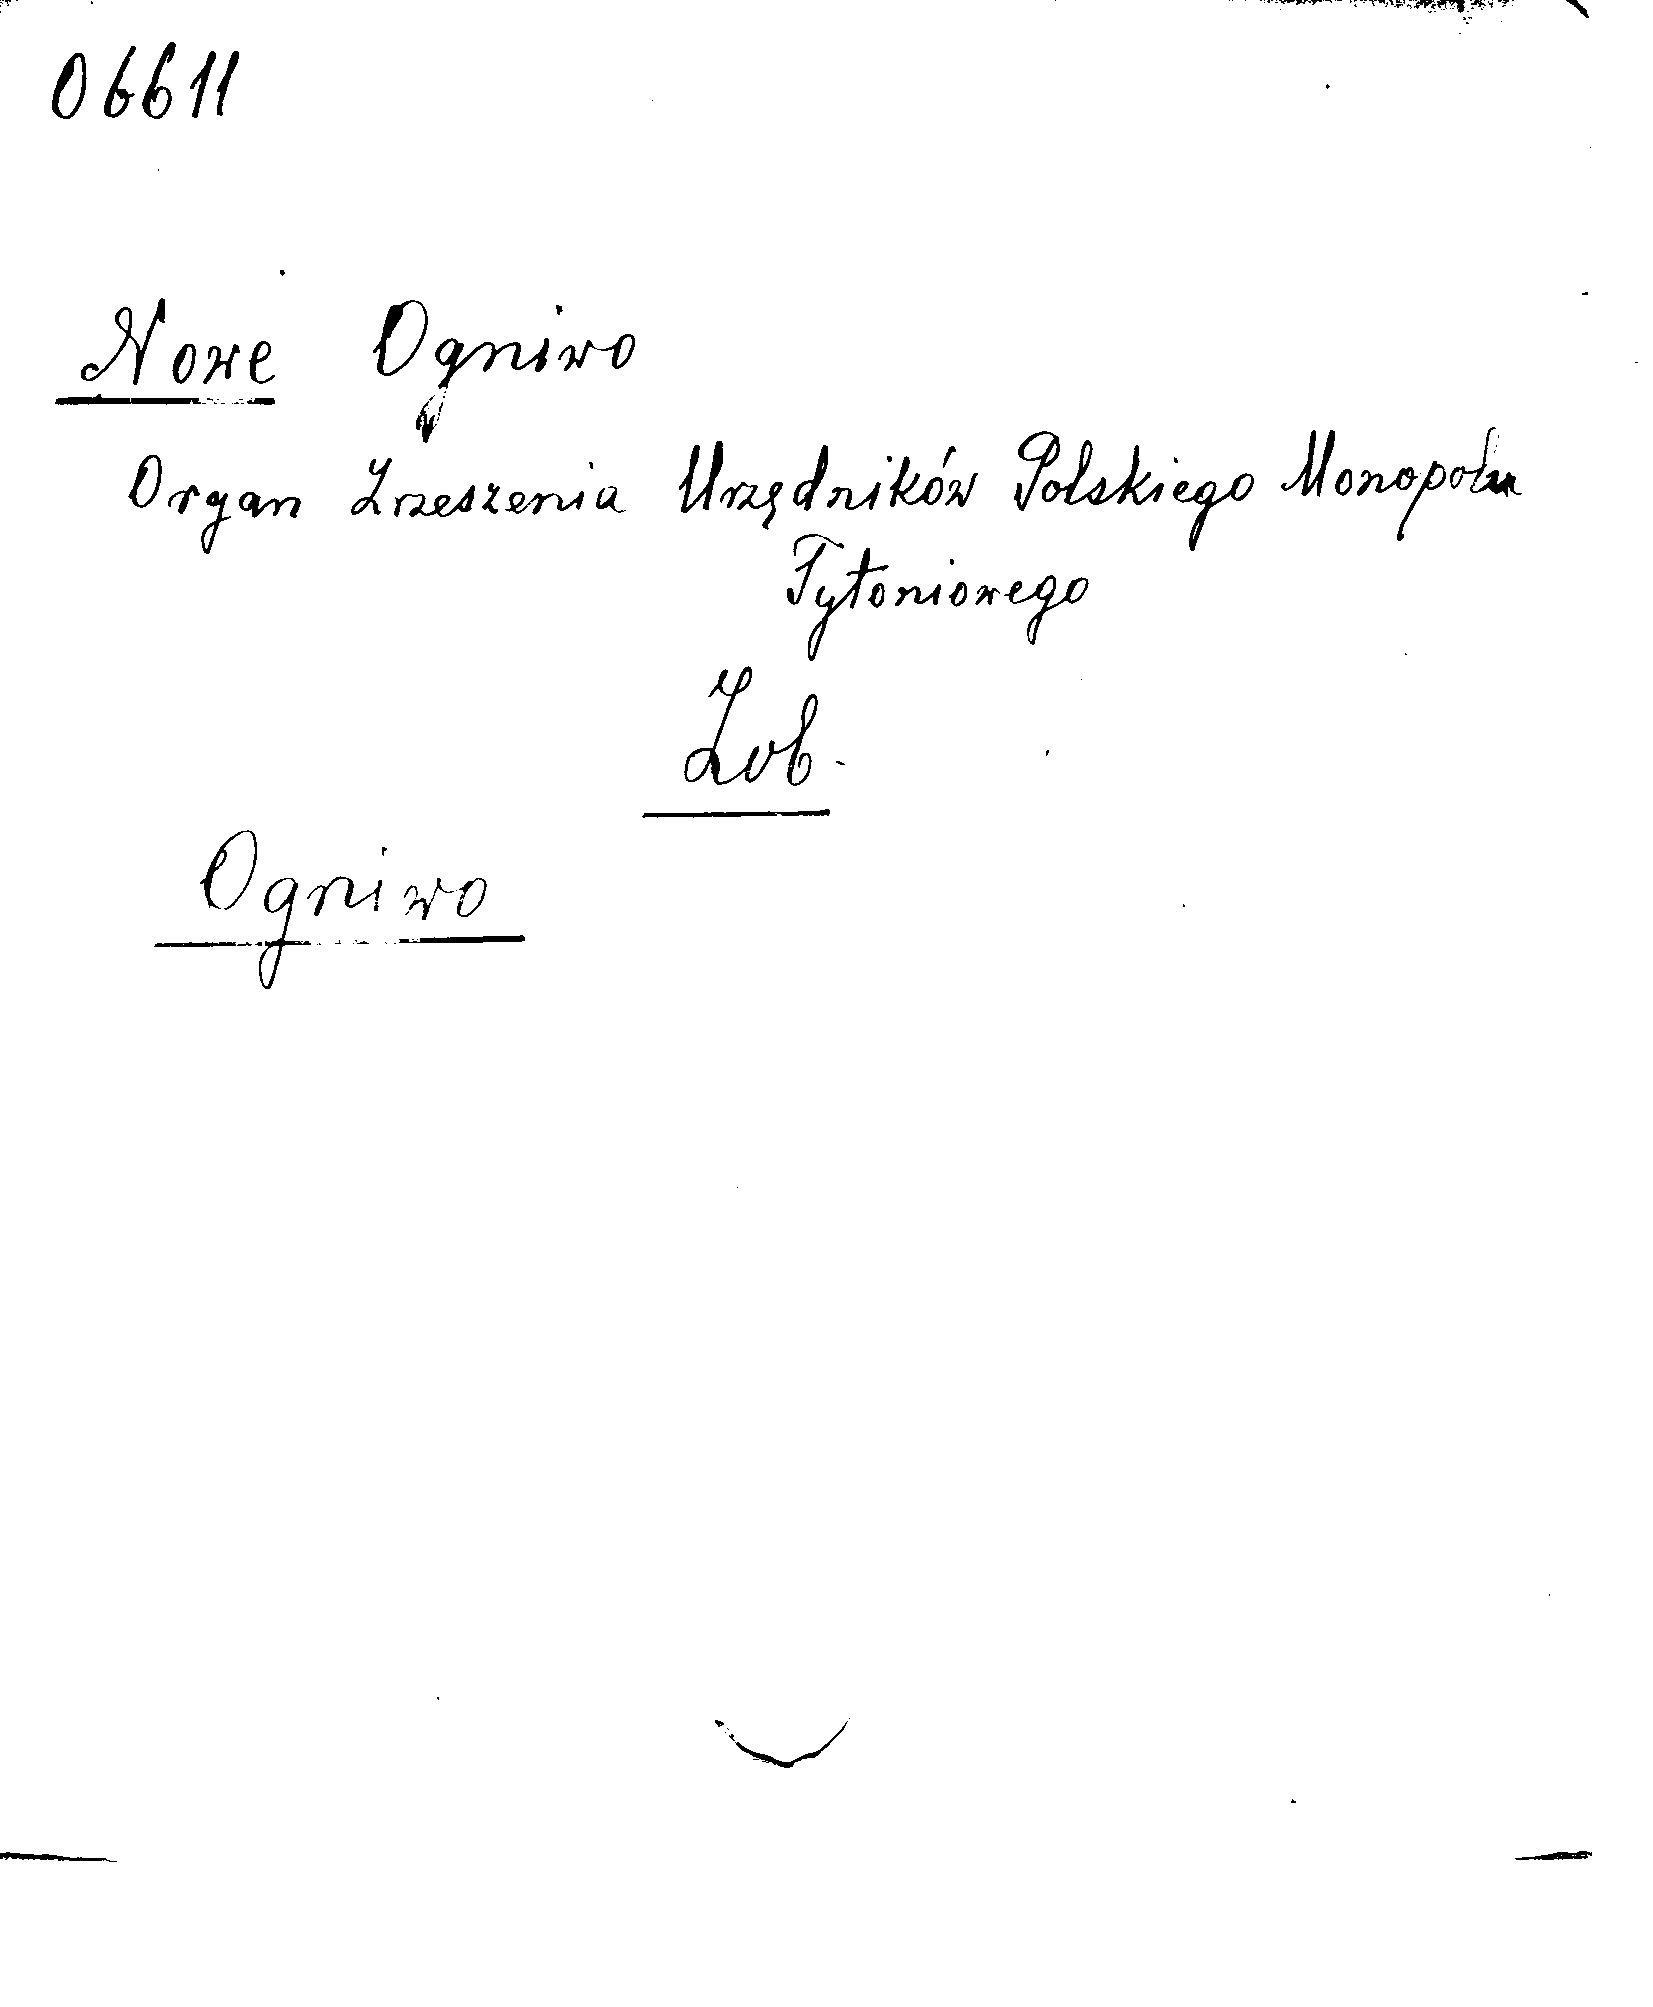 06611
Nowe Ogniwo
Organ Zrzeszenia Urzędników Polskiego Monopolu
Tytoniowego
Zob.
Ogniwo